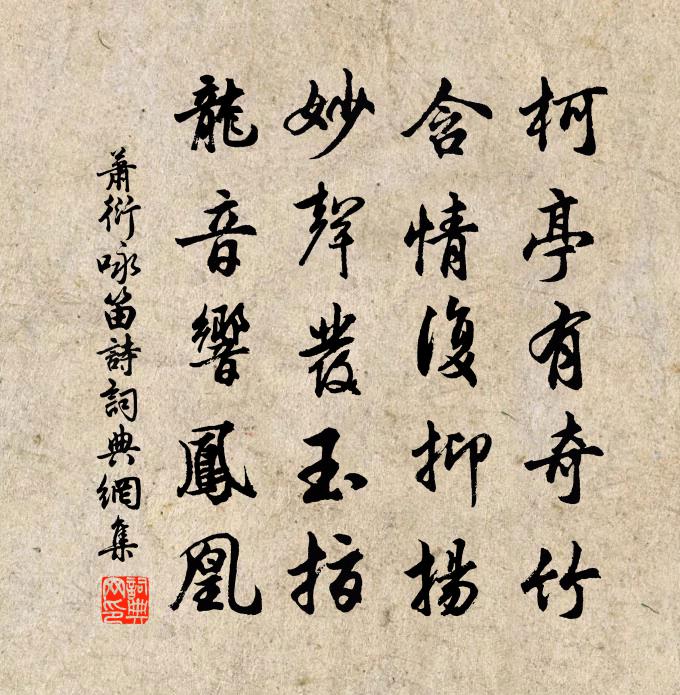 柯亭有奇竹
含情復抑揚
妙聲發玉指
龍音響鳳凰
蕭衍咏笛詩詞典網集
詞典网印